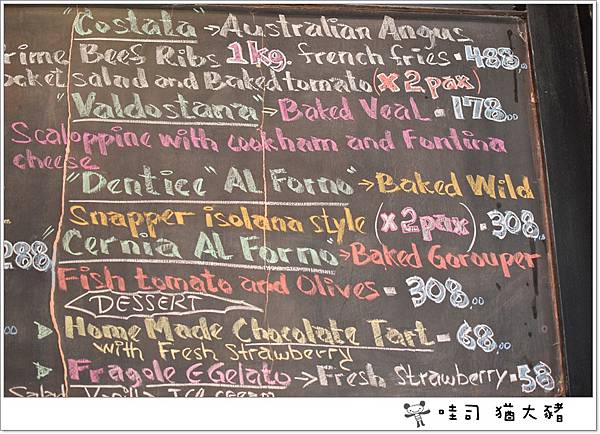 "Costata" → Australian Angus
Prime Beef Ribs 1kg. french fries - 488.00
Rocket salad and Baked tomato (x 2 pax)
"Valdostana" → Baked Veal - 178.00
Scaloppine with cookham and Fontina
cheese
"Dentice" AL Forno" → Baked Wild
Snapper isolana style (x 2 pax) - 308.00
288.00 Cernia AL Forno" → Baked Gorouper
Fish tomato and Olives - 308.00
DESSERT
Home Made Chocolate Tart - 68.00
with Fresh Strawberry
Fragole & Gelato → Fresh Strawberry - 58
Salad Vanilla Ice cream
哇司 猫大豬